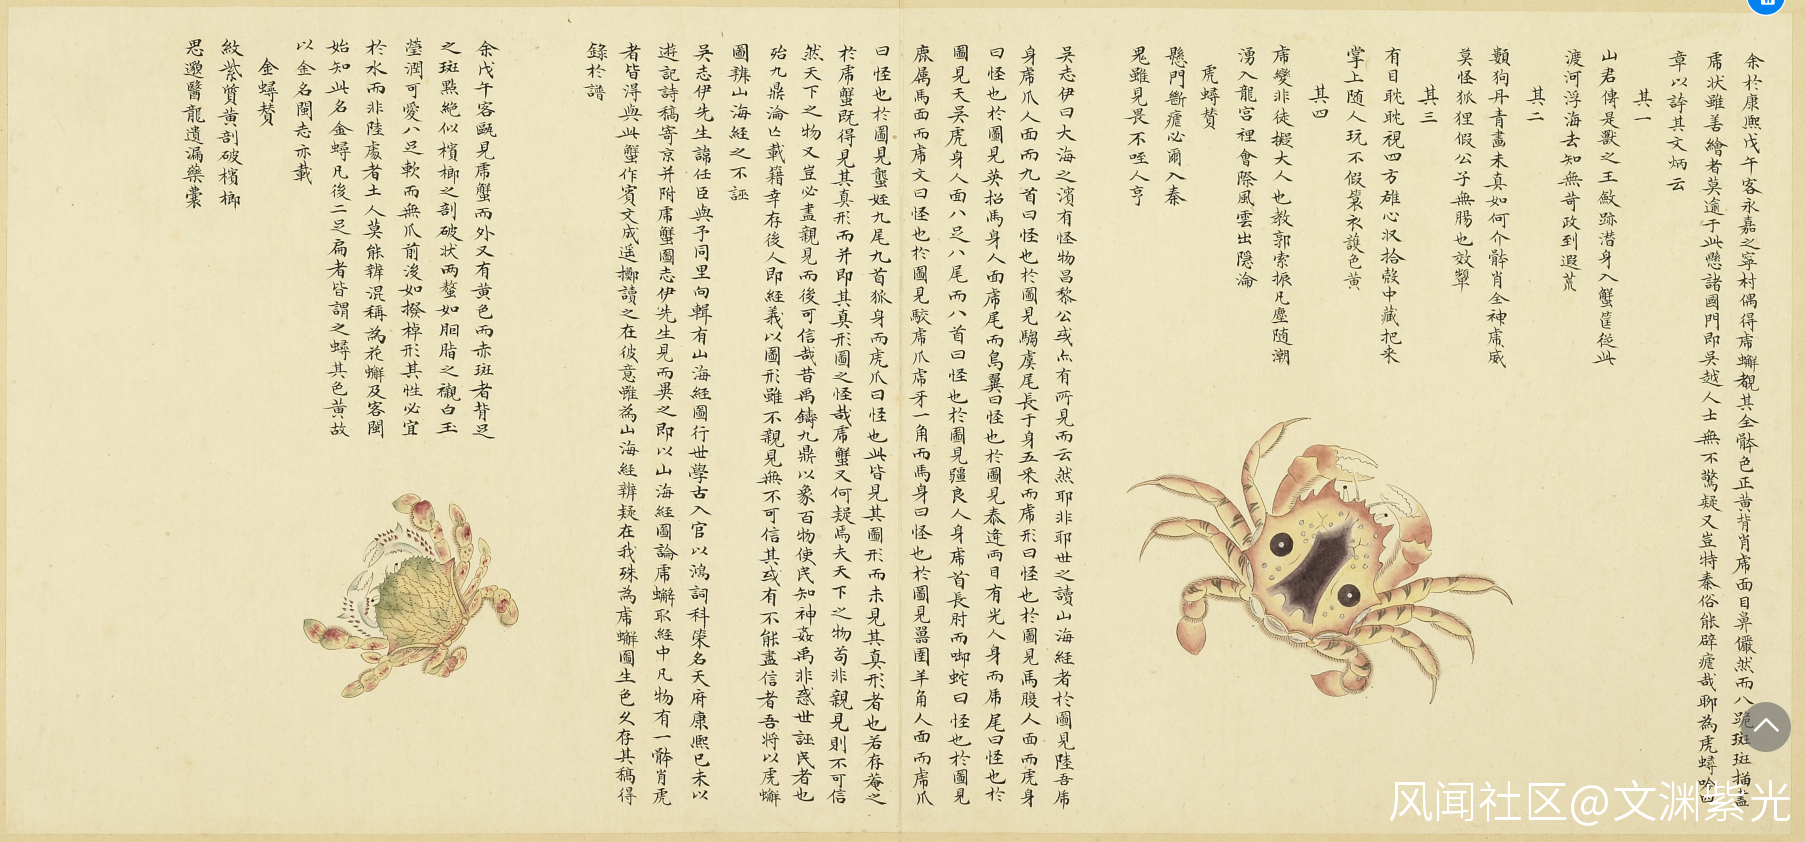 余於康熙戊午客永嘉之寧村偶得虎蠏覩其全骵色正黃背肖虎面目鼻儼然而八跪斑斑描畫
虎狀雖善繪者莫逾于此懸諸國門即吳越人士無不驚疑又豈特秦俗能辟瘧哉聊為虎蟳吟四
章以誇其文炳云
其一
山君傳是獸之王斂跡潜身入蟹筐從此
渡河浮海去知無苛政到遐荒
其二
類狗丹青畫未真如何介骵肖全神虎威
莫怪狐狸假公子無腸也效颦
其三
有目眈眈視四方雄心収拾殼中藏把来
掌上随人玩不假裳衣護色黃
其四
虎變非徒擬大人也教郭索振凡塵随潮
湧入龍宮裡會際風雲出隱淪
虎蟳賛
懸門斷瘧必爾入秦
鬼雖見畏不咥人亨
吳志伊曰大海之濱有怪物昌黎公或亦有所見而云然耶非耶世之讀山海經者於圖見陸吾虎
身虎爪人面而九首曰怪也於圖見騶虞尾長于身五采而虎形曰怪也於圖見馬腹人面而虎身
曰怪也於圖見英招馬身人面虎尾而鳥翼曰怪也於圖見泰逄兩目有光人身而虎尾曰怪也於
圖見天吳虎身人面八足八尾而八首曰怪也於圖見彊良人身虎首長肘而啣蛇曰怪也於圖見
鹿蜀馬面而虎文曰怪也於圖見駮虎爪虎牙一角而馬身曰怪也於圖見嚚圉羊角人面而虎爪
曰怪也於圖見蠪姪九尾九首狐身而虎爪曰怪也此皆見其圖形而未見其真形者也若存菴之
於虎蟹既得見其真形而并即其真形圖之怪哉虎蟹又何疑焉夫天下之物苟非親見則不可信
然天下之物又豈必盡親見而後可信哉昔禹鑄九鼎以象百物使民知神姦禹非惑世誣民者也
殆九鼎淪亡載籍幸存後人即經義以圖形雖不親見無不可信其或有不能盡信者吾將以虎蠏
圖辨山海經之不誣
吳志伊先生諱任臣與予同里向輯有山海經圖行世學古入官以鴻詞科榮名天府康熙已未以
遊記詩稿寄京并附虎蟹圖志伊先生見而異之即以山海經圖論虎蠏取經中凡物有一骵肖虎
者皆得與此蟹作賓文成遥擲讀之在彼意雖為山海經辨疑在我殊為虎蠏圖生色久存其稿得
錄於譜
余戊午客甌見虎蟹而外又有黃色而赤斑者背足
之斑點絶似檳榔之剖破状兩螯如胭脂之襯白玉
瑩潤可愛八足軟而無爪前後如撥棹形其性必宜
於水而非陸處者土人莫能辨混稱為花蠏及客閩
始知此名金蟳凡後二足扁者皆謂之蟳其色黃故
以金名閩志亦載
金蟳賛
紋紫質黃剖破檳榔
思邈醫龍遺漏藥囊
风闻社区@文渊紫光